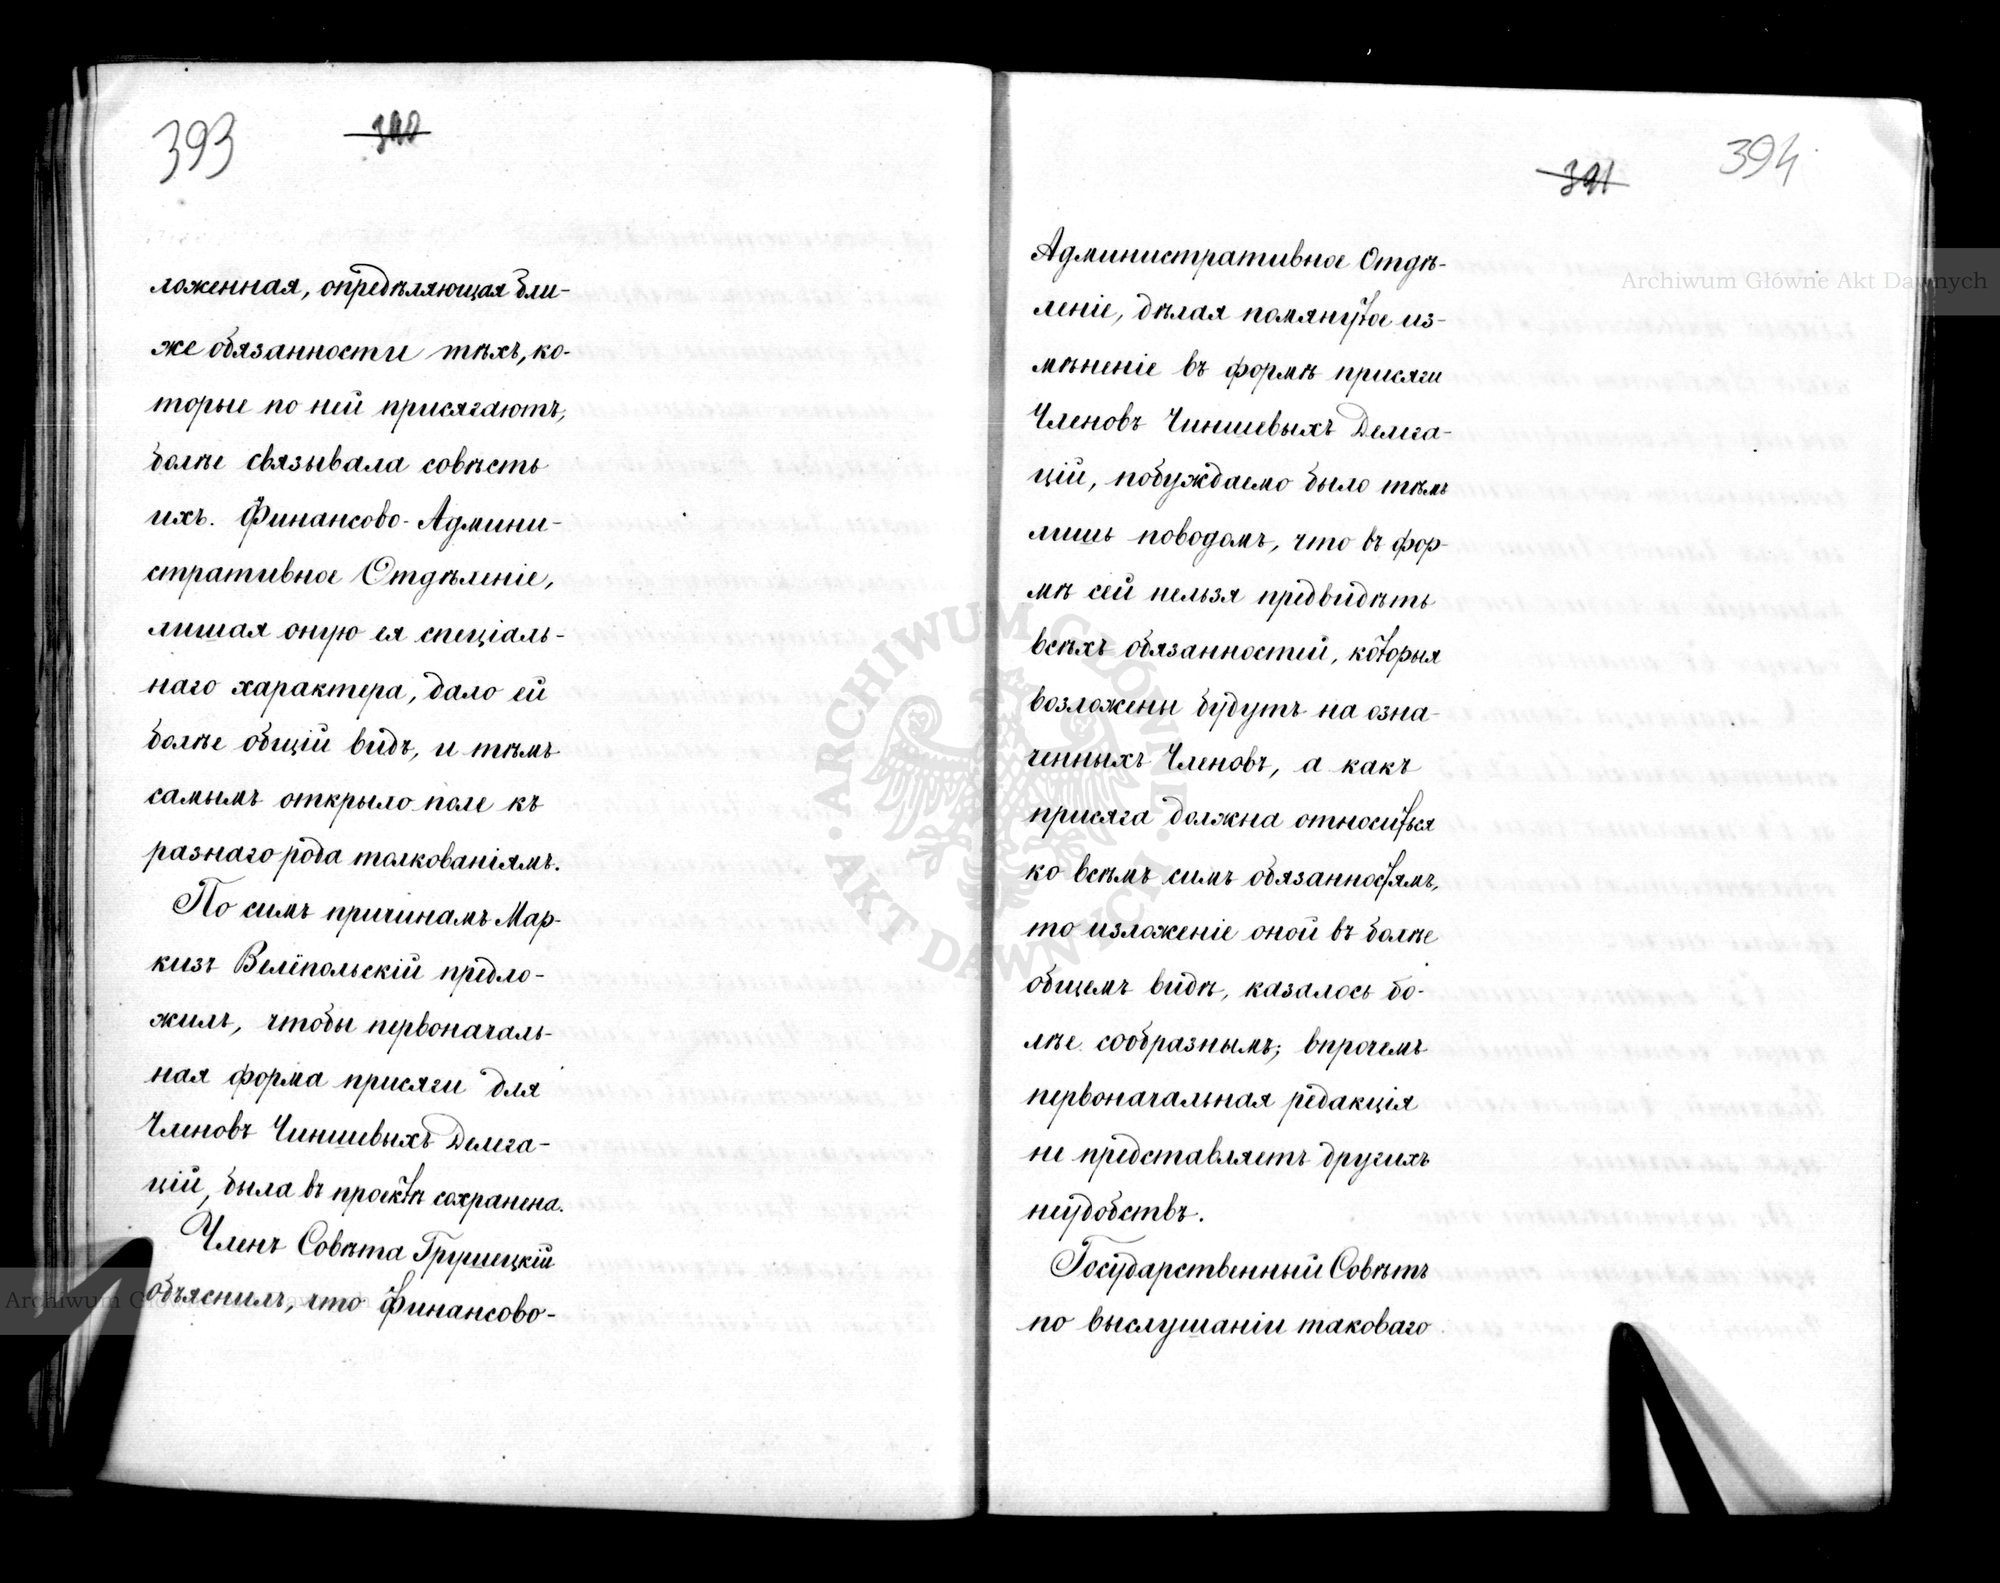 393
390
ложенная, опредѣляющая бли-
же обязанности тѣхъ, ко-
торые по ней присягаютъ,
болѣе связывала совѣсть
ихъ. Финансово-Админи-
стративное Отдѣленіе,
лишая оную ея спеціаль-
наго характера, дало ей
болѣе общій видъ, и тѣмъ
самымъ открыло поле къ
разнаго рода толкованіямъ.
По симъ причинамъ Мар-
кизъ Велёпольскій предло-
жилъ, чтобы первоначаль-
ная форма присяги для
Членовъ Чиншевыхъ Делега-
цій, была въ проэктѣ сохранена.
Членъ Совѣта Грушецкій
объяснилъ, что Финансово-
394
391
Административное Отдѣ-
леніе, дѣлая помянутое из-
мѣненіе въ формѣ присяги
Членовъ Чиншевыхъ Делега-
цій, побуждаемо было тѣмъ
лишь поводомъ, что въ фор-
мѣ сей нельзя предвидѣть
всѣхъ обязанностей, которыя
возложены будутъ на озна-
ченныхъ Членовъ, а какъ
присяга должна относиться
ко всѣмъ симъ обязанностямъ,
то изложеніе оной въ болѣе
общемъ видѣ, казалось бо-
лѣе сообразнымъ; впрочемъ
первоначальная редакція
не представляетъ другихъ
неудобствъ.
Государственный Совѣтъ
по выслушаніи таковаго
Archiwum Główne Akt Dawnych
ARCHIWUM GŁÓWNE AKT DAWNYCH